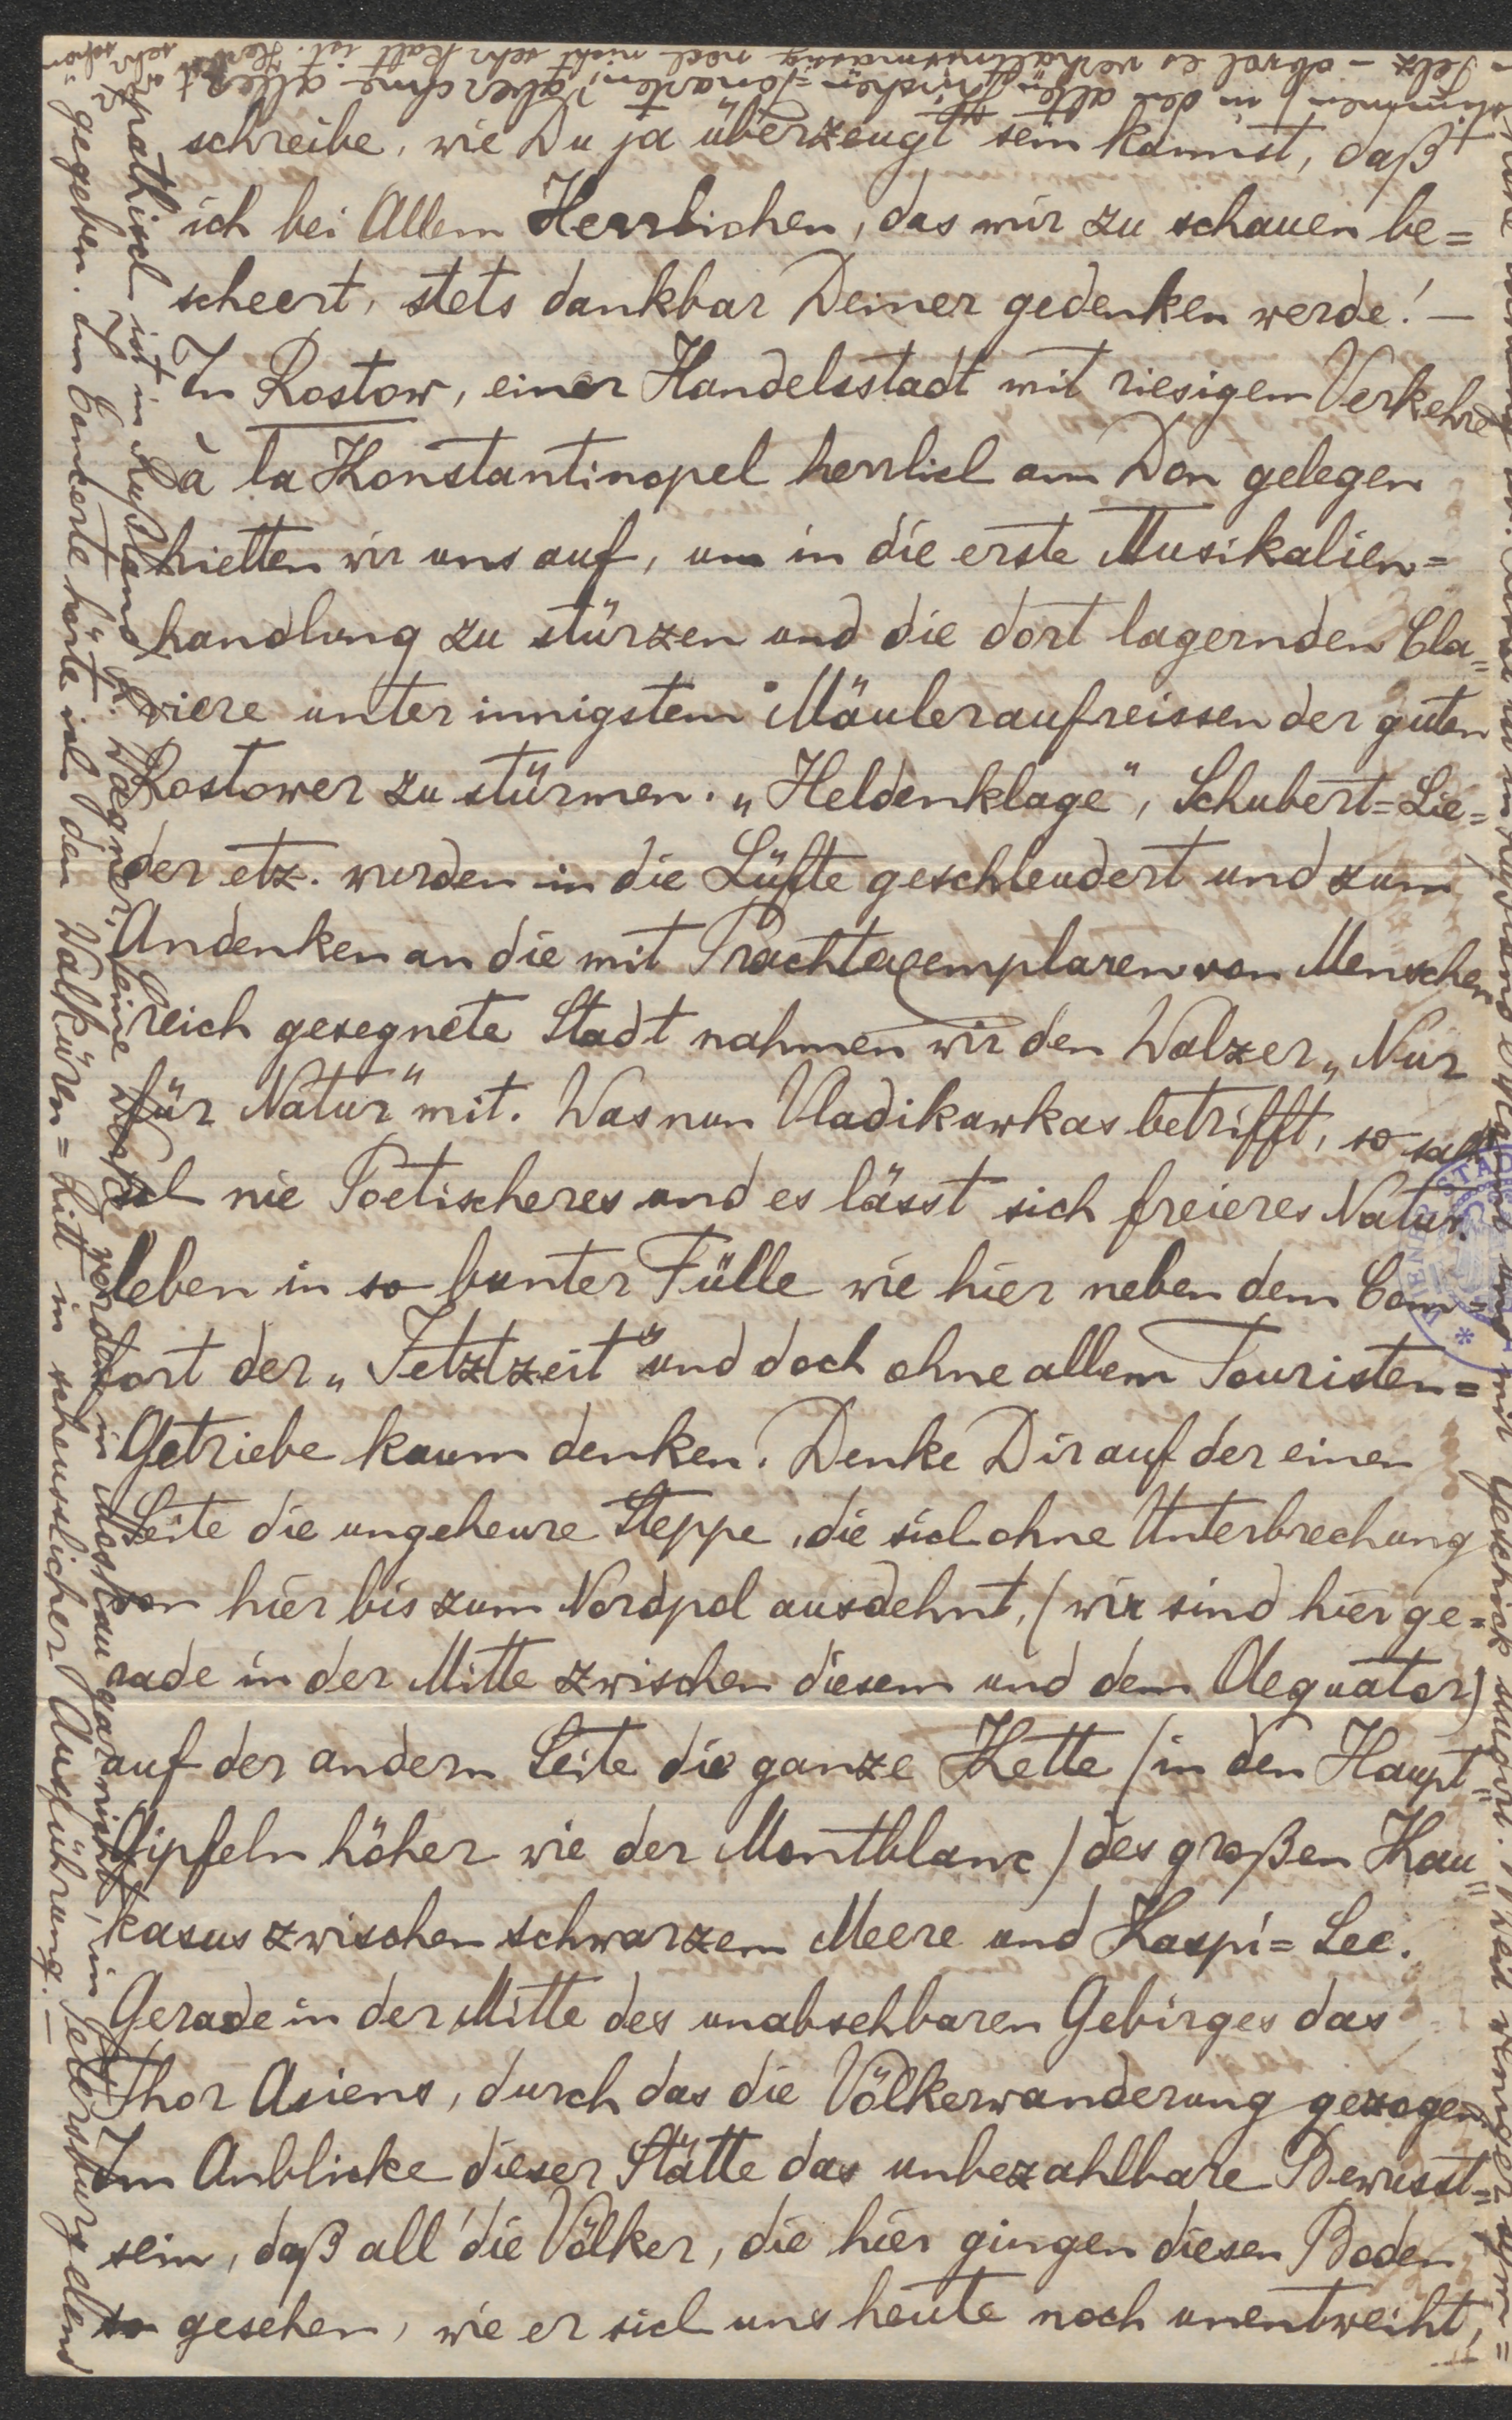 schreibe, wie Du ja überzeugt sein kannst, daß
ich bei Allem Herrlichen, das mir zu schauen be=
scheert, stets dankbar Deiner gedenken werde! –
In Rostow, einer Handelsstadt mit riesigem Verkehre
à la Konstantinopel herrlich am Don gelegen
hielten wir uns auf, um in die erste Musikalien=
handlung zu stürzen und die dort lagernden Cla=
viere unter innigstem Mäuleraufreissen der guten
Rostower zu stürmen. „Heldenklage", Schubert=Lie=
der etz. wurden in die Lüfte geschleudert und zum
Andenken an die mit Prachtexemplaren von Menschen
reich gesegnete Stadt nahmen wir den Walzer „Nur
für Natur" mit. Was nun Vladikawkas betrifft, so sah
ich nie Poetischeres und es lässt sich freieres Natur=
leben in so bunter Fülle wie hier neben dem Com=
fort der „Jetztzeit" und doch ohne allem Touristen=
Getriebe kaum denken. Denke Dir auf der einen
Seite die ungeheure Steppe, die sich ohne Unterbrechung
von hier bis zum Nordpol ausdehnt, (wir sind hier ge=
rade in der Mitte zwischen diesem und dem Aequator)
auf der andern Seite die ganze Kette (in den Haupt=
Gipfeln höher wie der Montblanc) des großen Kau=
kasus zwischen schwarzem Meere und Kaspi=See.
Gerade in der Mitte des unabsehbaren Gebirges das
Thor Asiens, durch das die Völkerwanderung gezogen.
Im Anblicke dieser Stätte das unbezahlbare Bewusst=
sein, daß all' die Völker, die hier gingen diesen Boden
so gesehen, wie er sich uns heute noch unentweiht,
pathisch ist in Rußland R. Wagner. Seine Werke werden in Moskau gar nicht, in Petersburg elend
gegeben. Im Concerte hörte ich den Walküren=Ritt in scheusslicher Ausführung. –
stimmen (in den alten Kirchen=Tonarten) aber ohne aller
Pelz – obwol es verhältnismässig noch nicht sehr kalt ist.
mit Geschick